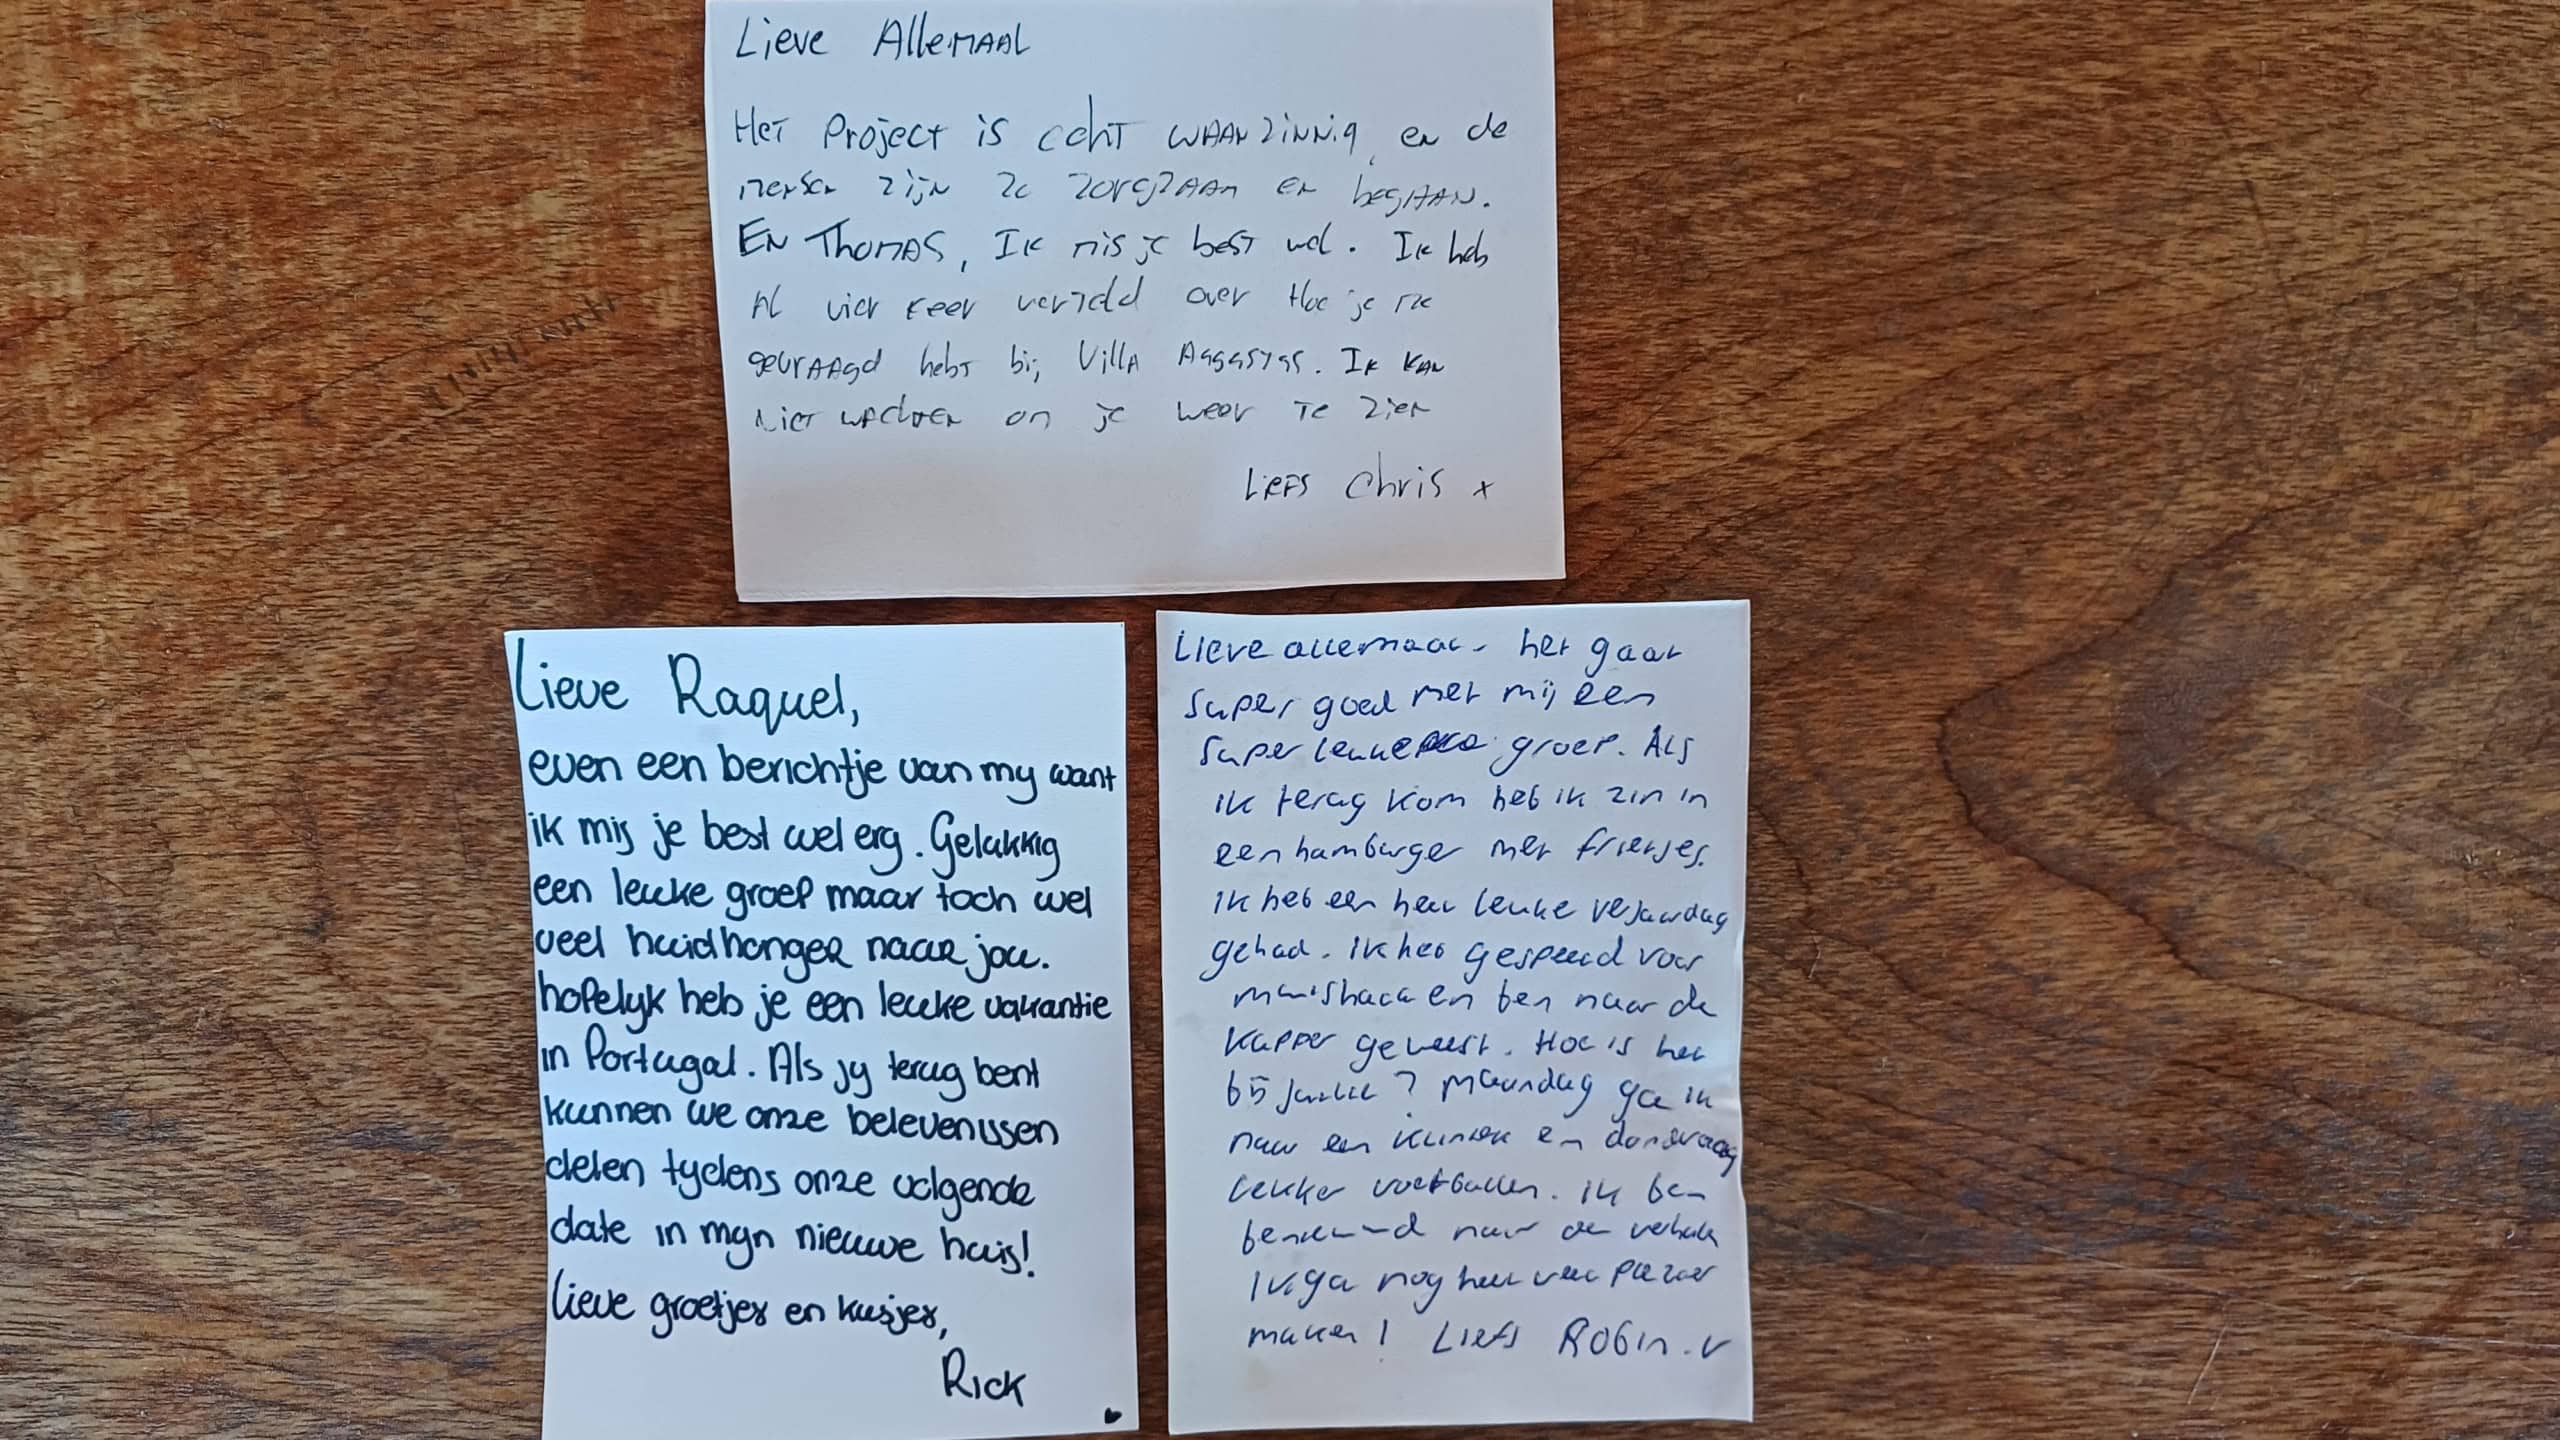 Lieve Allemaal
Het Project is echt waanzinnig, en de
mensen zijn zo zorgzaam en begaan.
En Thomas, Ik mis je best wel. Ik heb
Al vier keer verteld over Hoe je me
gevraagd hebt bij Villa Ik kan
niet wachten om je weer te zien
Liefs Chris x
Lieve Raquel,
even een berichtje van my want
ik mis je best wel erg. Gelukkig
een leuke groep maar toch wel
veel huidhonger naar jou.
hopelyk heb je een leuke vakantie
in Portugal. Als jy terug bent
kunnen we onze belevenissen
delen tydens onze volgende
date in myn nieuwe huis!
Lieve groetjes en kusjes,
Rick
Lieve allemaal - het gaat
super goed met mij een
super leuke groep. Als
ik terug kom heb ik zin in
een hamburger met frietjes.
ik heb een heel leuke verjaardag
gehad. ik heb gespeeld voor
en ben naar de
kapper geweest. Hoe is het
bij jullie? Maandag ga ik
naar een en donderdag
lekker voetballen. ik ben
benieuwd naar de verhalen
ik ga nog heel veel plezier
maken! Liefs Robin.v